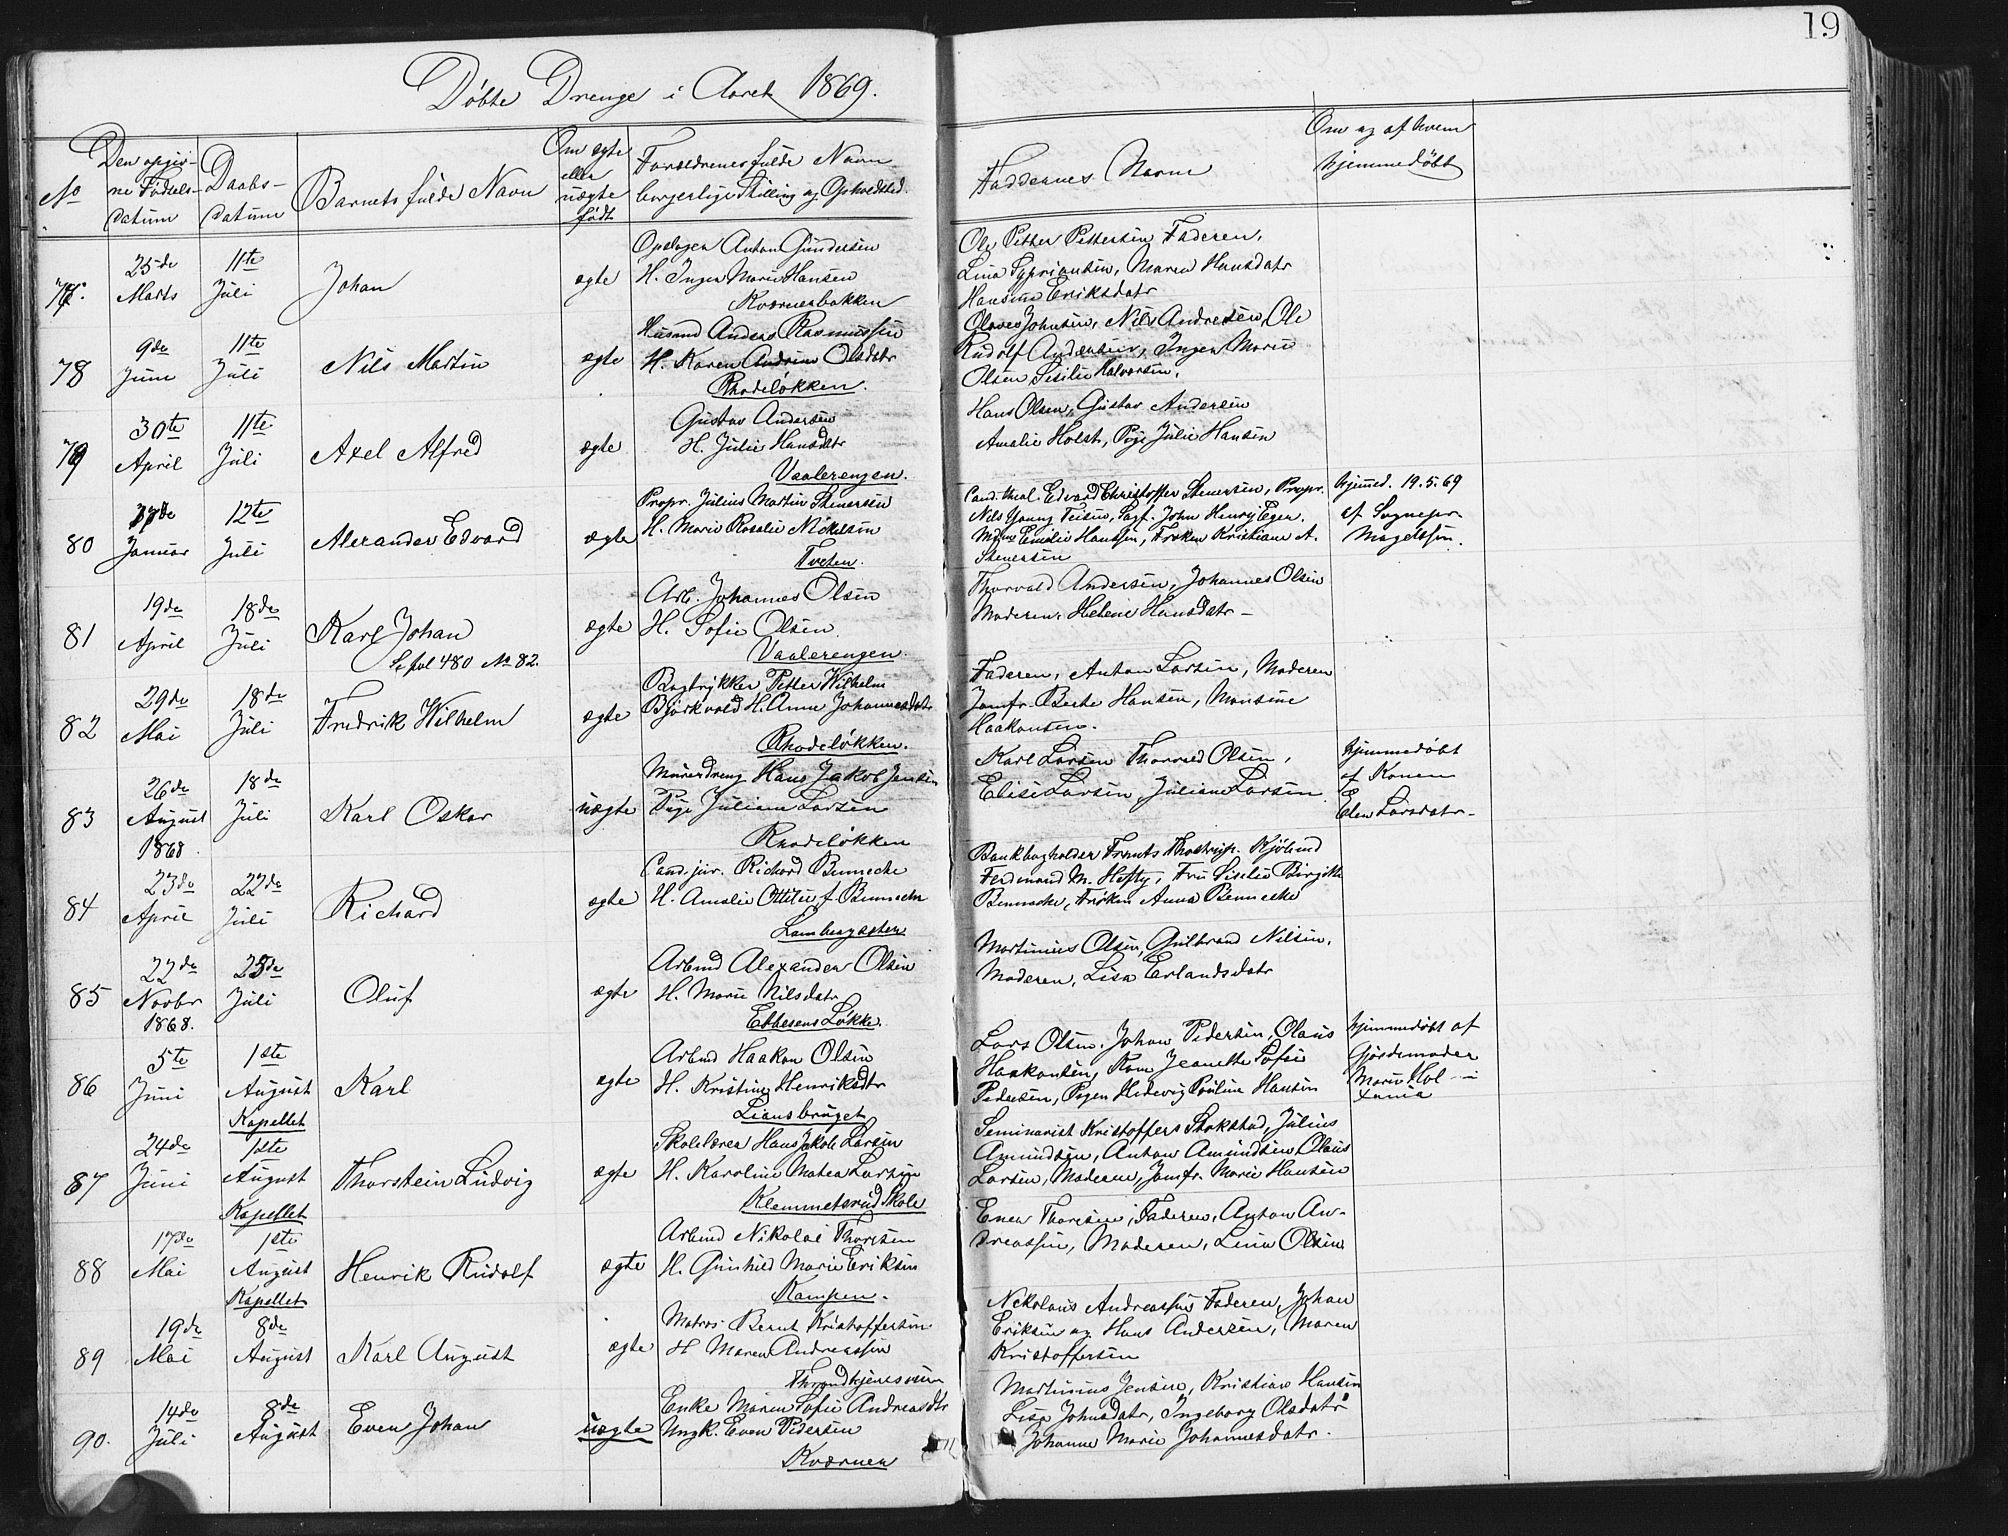 19
Døbte Drenge i Aaret 1869.
No
Den opgiv-
ne Fødsels-
datum
Daabs-
datum
Barnets fulde Navn
Om ægte
eller
uægte
født
Forældrenes fulde Navn
borgerlige Stilling og Opholdsted.
Faddernes Navne
Om og af hvem
hjemmedøbt
77.
25de
Marts
11te
Juli
Johan
ægte
Opsager Anton Gundersen
H. Inger Marie Hansen
Kværnerbakken
Ole Petter Pettersen Faderen,
Lina Sypriansen, Maren Hansdatr
Hansine Eriksdatr
78
9de
Juni
11te
Juli
Nils Martin
ægte
Husmd Anders Rasmussen
H. Karen Andrine Olsdatr
Rhodeløkken.
Olaves Johnsen, Nils Andresen, Ole
Rudolf Andersen, Inger Marie
Olsen Sisilie Halvorsen.
79
30te
April
11te
Juli
Axel Alfred
ægte
Gustav Andersen
H. Julie Hansdtr
Vaalerengen.
Hans Olsen, Gustav Andersen
Amalie Holst, Pige Julie Hansen
80
Januar
12te
Juli
Alexander Edvard
ægte
Propr. Julius Martin Stenersen
H. Marie Rosalie Mikelsen
Tveten.
Cand. theol. Edvard Christoffer Stenersen, Propr.
Nils Young Teisen, Sagf. John Henry Eger.
Mdme Emilie Hanssen, Frøken Kristiane A.
Stenersen
hjemmed. 19.5.69
af Sognepr.
Magelssen.
81
19de
April
18de
Juli
Karl Johan
Se fol 480 No 82.
ægte
Arb. Johannes Olsen
H. Sofie Olsen.
Vaalerengen
Thorvald Andersen, Johannes Olsen
Moderen, Helene Hansdatr -
82
29de
Mai
18de
Juli
Fredrik Wilhelm
ægte
Bogtrykker Petter Wilhelm
Bjørkvold H. Anne Johannesdatr
Rhodeløkken.
Faderen, Anton Larsen, Moderen
Jomfr. Berte Hansen, Monsine
Haakonsen.
83
26de
August
1868.
18de
Juli
Karl Oskar
uægte
Murerdreng Hans Jakob Jensen
Pige Juliane Larsen
Rhodeløkken
Karl Larsen Thorvald Olsen,
Elise Larsen, Juliane Larsen
hjemmedøbt
af Konen
Elen Larsdatr-
84
23de
April
22de
Juli
Richard
ægte
Cand. jur. Richard Bennecke
H. Amalie Ottilie f. Bennecke
Lambersæter
Bankbogholder Frants Thostrup. Kjøbmd
Ferdinand M. Hefty, Fru Sisilie Birgitte
Bennecke, Frøken Anna Bennecke
85
22de
Novbr
1868.
25de
Juli
Oluf
ægte
Arbmd Alexander Olsen
H. Marie Nilsdatr
Ebbesens Løkke.
Martinius Olsen, Gulbrand Nilsen,
Moderen, Lisa Erlandsdatr
86
5te
Juni
1ste
August
Kapellet
Karl
ægte
Arbmd Haakon Olsen
H. Kristine Henriksdtr
Liansbruget
Lars Olsen, Johan Pedersen, Olaus
Haakonsen, Kone Jeanette Sofie
Pedersen, Pigen Hedevig Pouline Hansen
hjemmedøbt af
Gjordemoder
Marie
87
24de
Juni
1ste
August
Kapellet
Thorstein Ludvig
ægte
Skolelærer Hans Jakob Larsen
H. Karoline Matea Larsen
Klemmetsrud Skole
Seminarist Kristoffer Stokstad, Julius
Amundsen, Anton Amundsen Olaus
Larsen, Moderen, Jomfr. Marie Hansen
88
17de
Mai
1ste
August
Kapellet
Henrik Rudolf
ægte
Arbmd Nikolai Thoresen
H. Gunhild Marie Eriksen
Kampen.
Even Thoresen, Faderen, Anton An-
dreassen, Moderen, Lina Olsen
89
19de
Mai
8de
August
Karl August
ægte
Matros Bernt Kristoffersen
H Maren Andreassen
Throndhjemsveien
Nekolaus Andreassen Faderen, Johan
Eriksen og Hans Andersen, Maren
Kristoffersen
90.
14de
Juli
8de
August
Even Johan
uægte
Enke Maren Sofie Andreasdtr
Ungk. Even Pedersen
Kværner
Martinius Jensen, Kristian Hansen
Lise Johnsdatr, Ingeborg Olsdatr
Johanne Marie Johannesdatr.